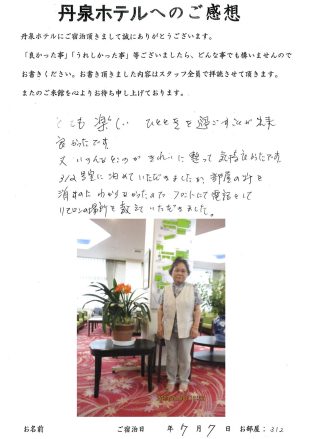 丹泉ホテルへのご感想
丹泉ホテルにご宿泊頂きまして誠にありがとうございます。
「良かった事」「うれしかった事」等ございましたら、どんな事でも構いませんので
お書きください。お書き頂きました内容はスタッフ全員で拝読させて頂きます。
またのご来館を心よりお待ち申し上げております。
とても楽しい ひとときを過ごすことが出来
良かったです
又 いろんなところが きれいに整って 気持よかったです
312号室に泊めていただきましたが、部屋の灯を
消すのに わからなかったので フロントにて電話をして
リモコンの場所を教えていただきました。
お名前 ご宿泊日 年 7 月 7 日 お部屋: 312